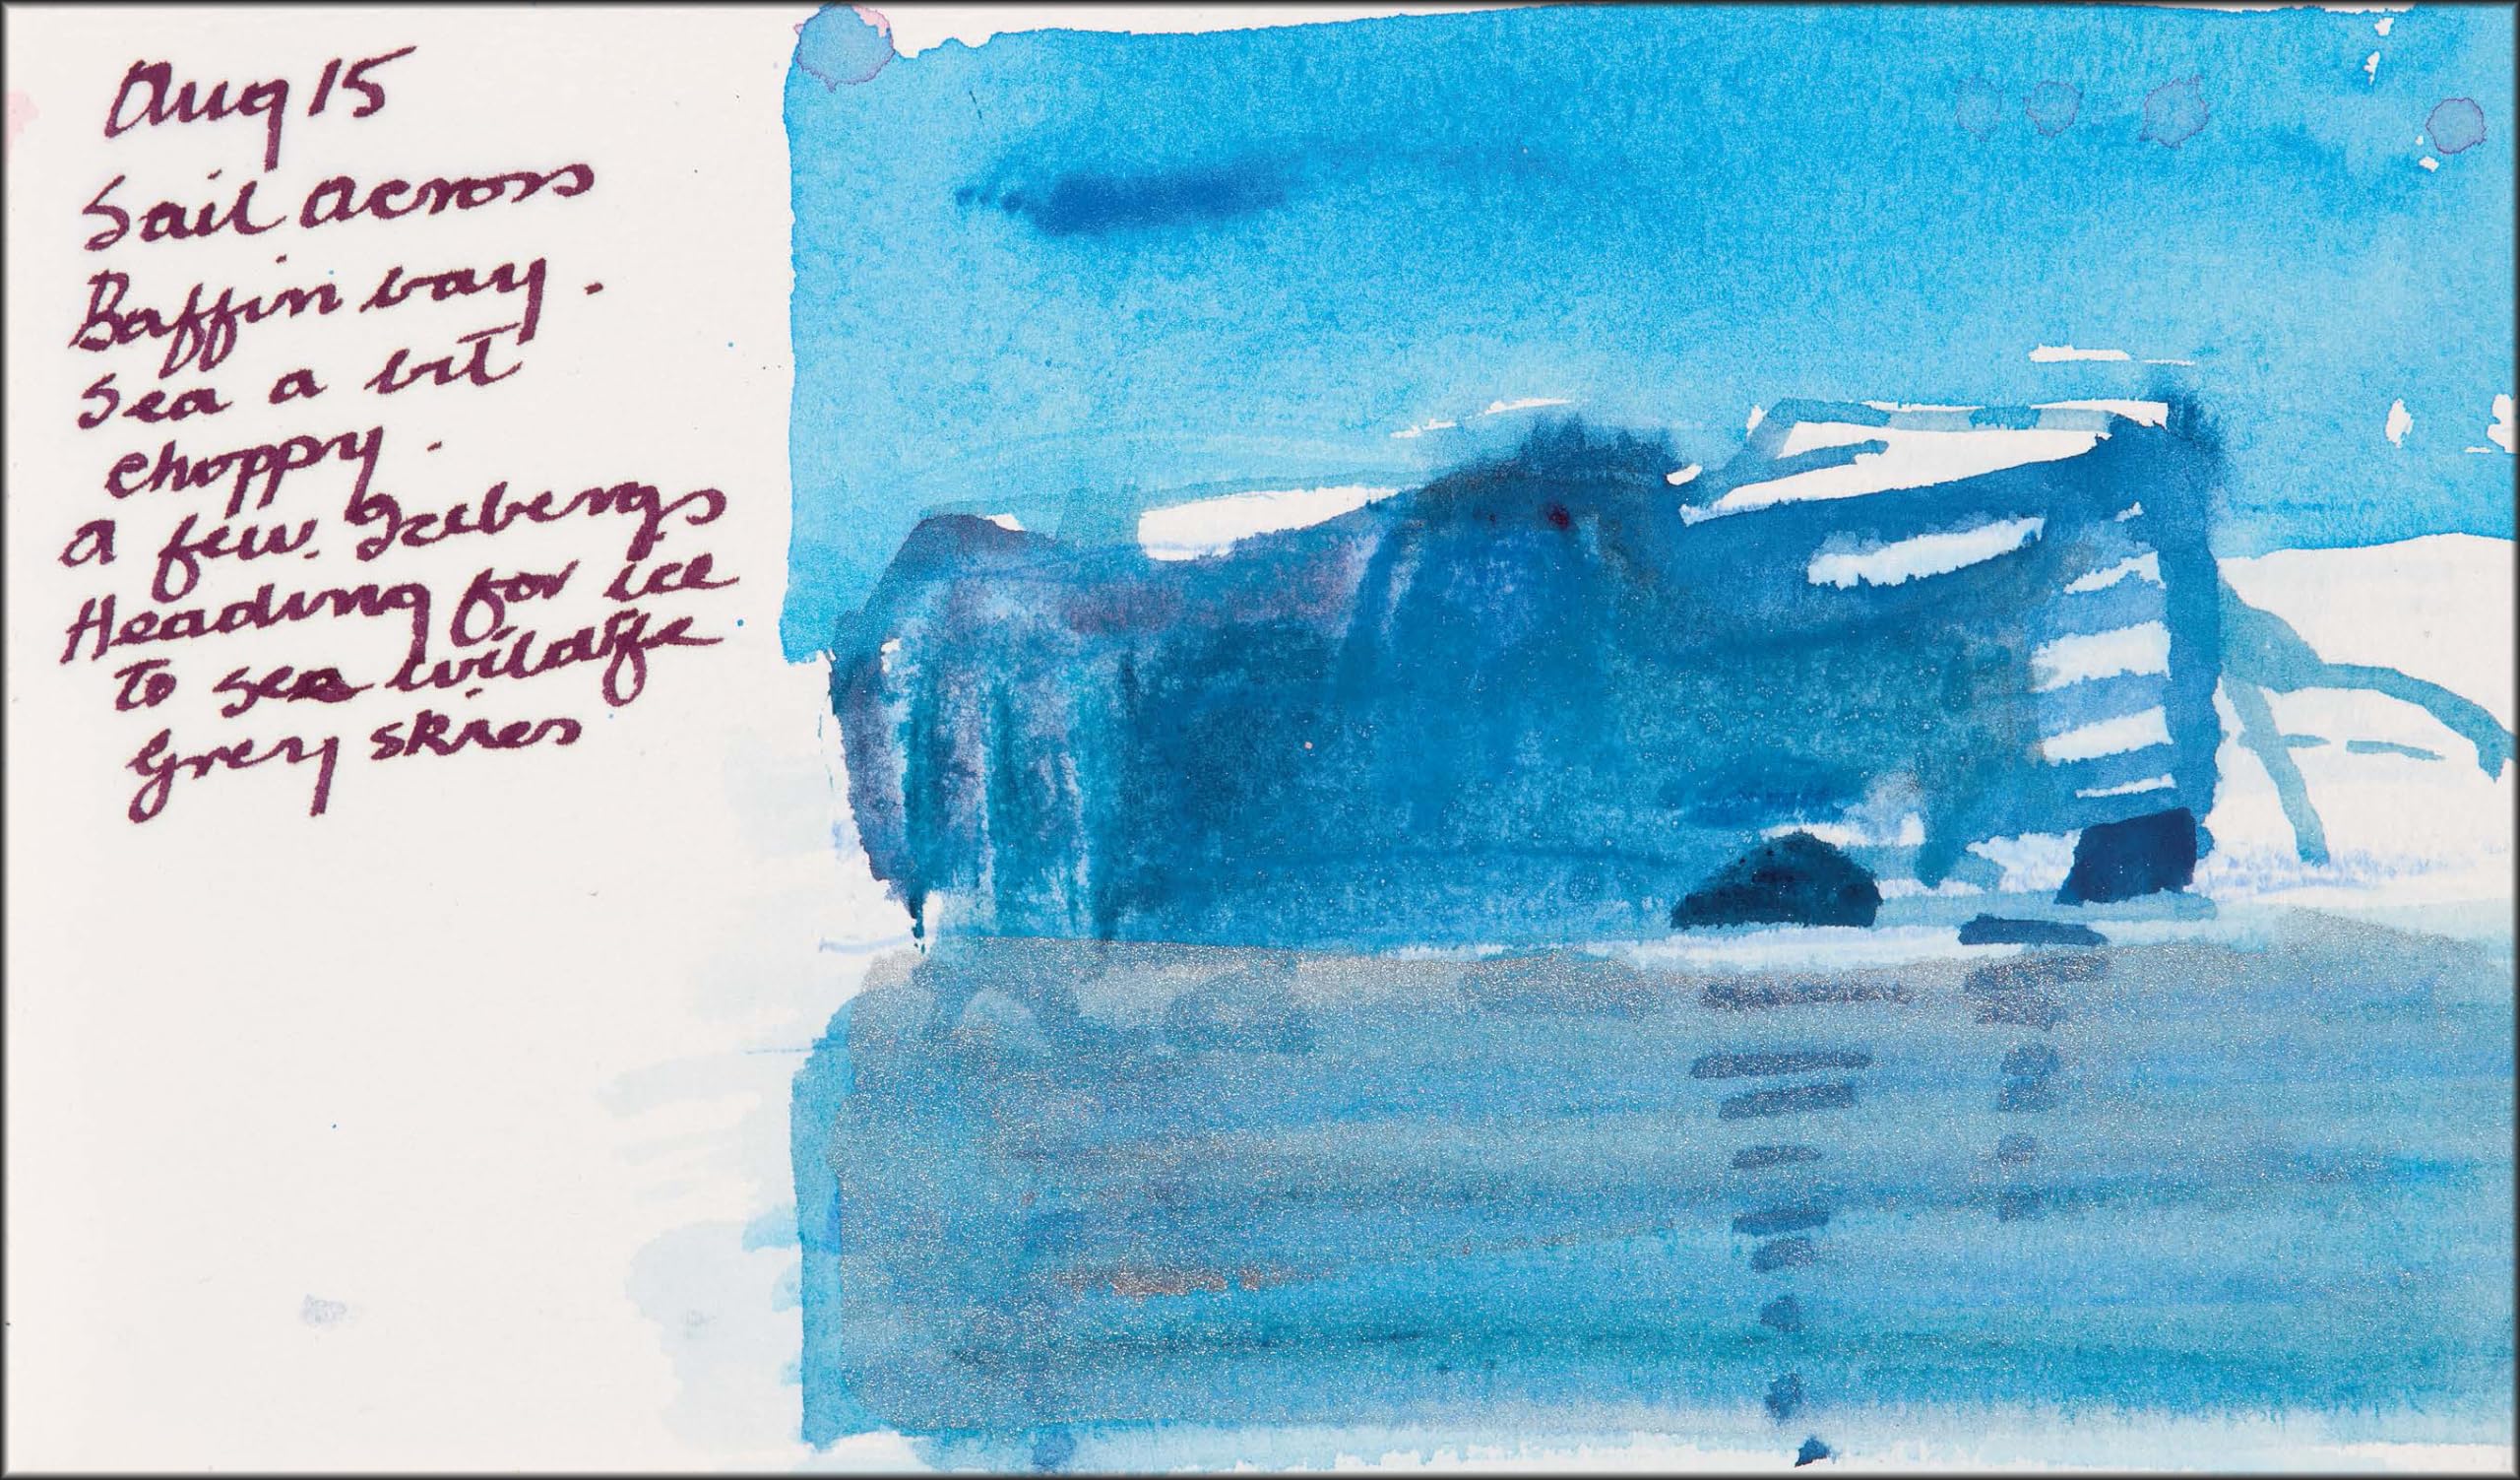 Aug 15
Sail across
Baffin bay.
Sea a bit
choppy.
A few Icebergs
Heading for ice
to see wildlife
Grey skies